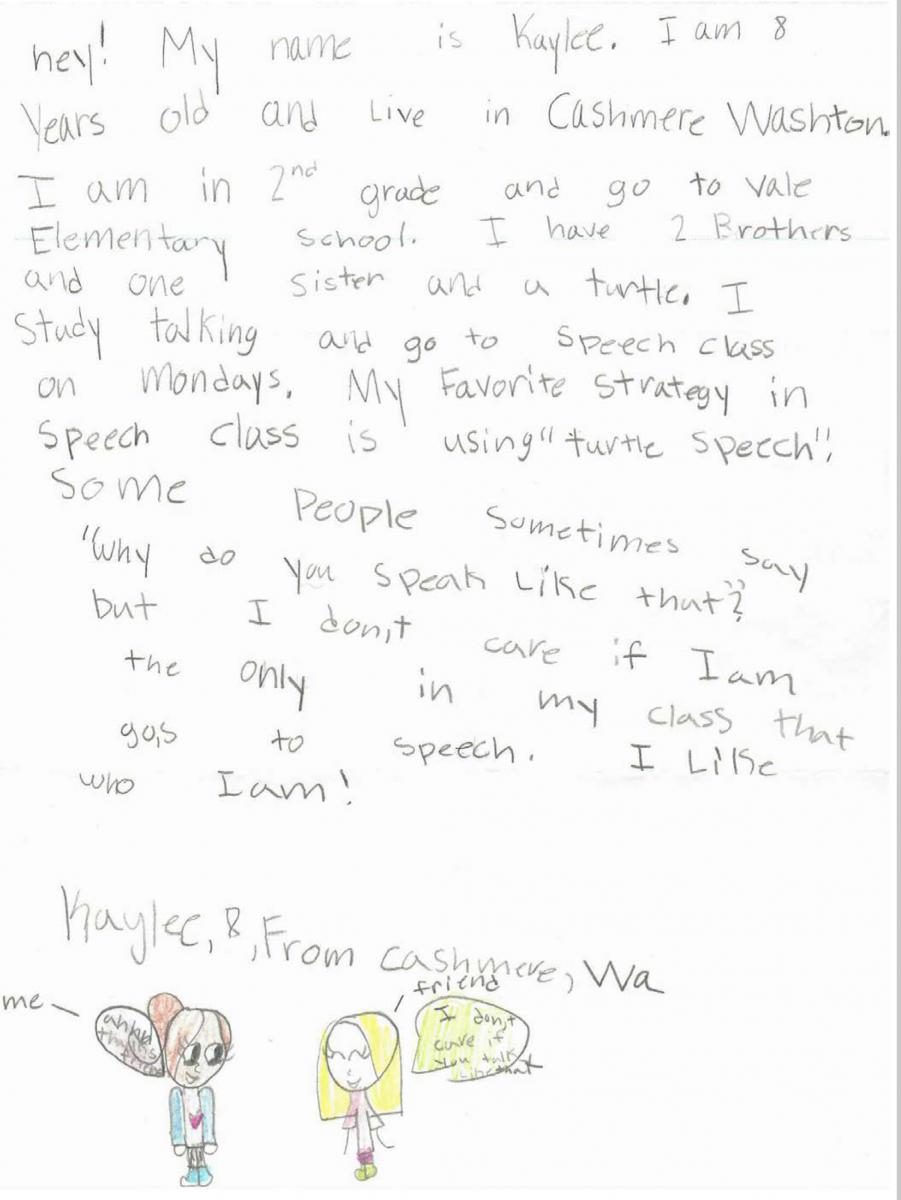 hey! My name is Kaylee. I am 8
Years old and Live in Cashmere Washton.
I am in 2nd grade and go to vale
Elementary school. I have 2 Brothers
and one sister and a turtle. I
Study talking and go to speech class
on Mondays. My Favorite strategy in
speech class is using "turtle speech"!
Some People sometimes say
"Why do you speak Like that"?
but I don,t care if I am
the only in my class that
go,s to speech. I Like
who I am!
Kaylee, 8, From cashmere, Wa
me
friend
ahhh
thanks
friend
I don,t
care if
you talk
Like that